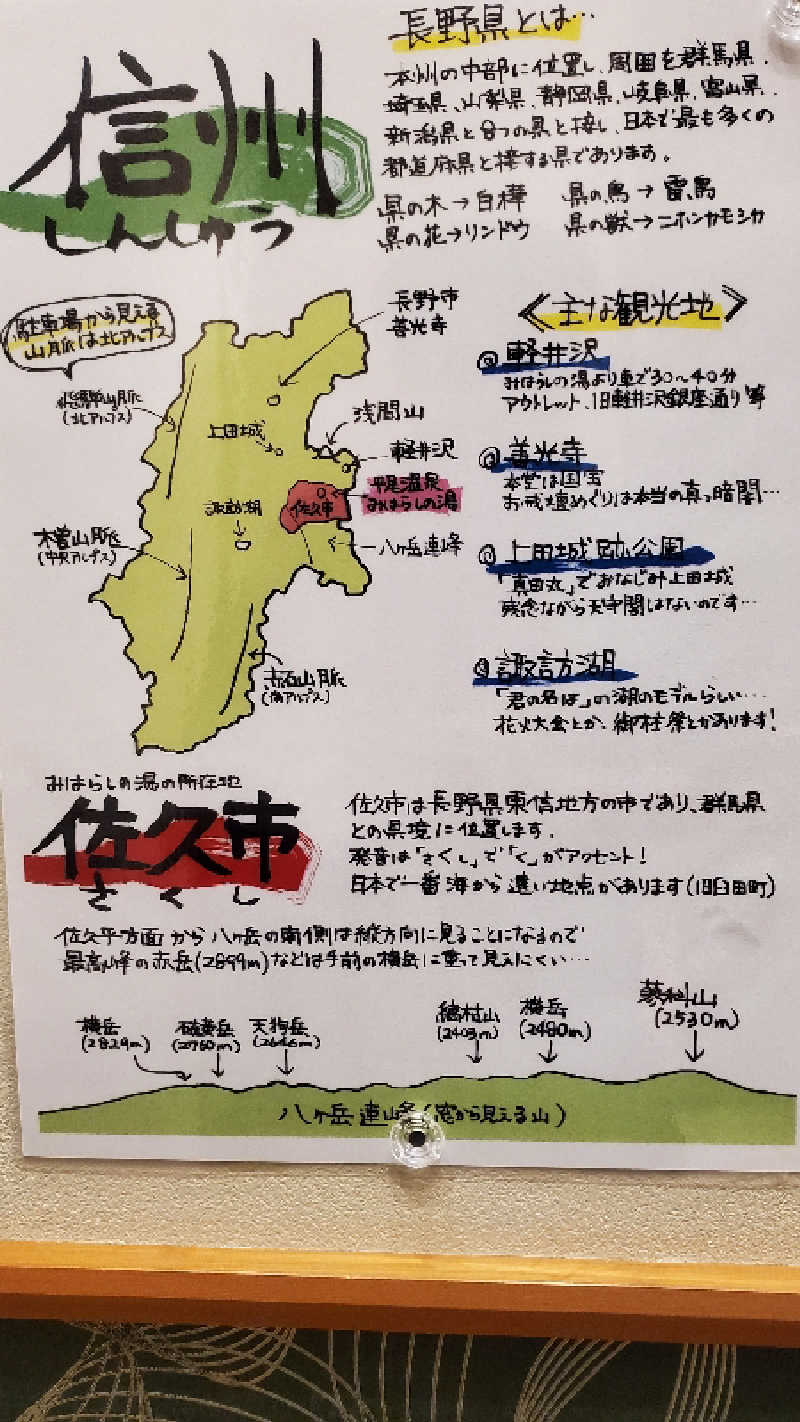 信州
しんしゅう
長野県とは…
本州の中部に位置し、周囲を群馬県、
埼玉県、山梨県、静岡県、岐阜県、富山県、
新潟県と8つの県と接し、日本で最も多くの
都道府県と接する県であります。
県の木→白樺 県の鳥→雷鳥
県の花→リンドウ 県の獣→ニホンカモシカ
駐車場から見える
山脈は北アルプス
飛騨山脈
(北アルプス)
長野市
善光寺
上田城
浅間山
軽井沢
平尾温泉
みはらしの湯
佐久市
諏訪湖
八ヶ岳連峰
木曽山脈
(中央アルプス)
赤石山脈
(南アルプス)
≪主な観光地≫
@軽井沢
みはらしの湯より車で30〜40分
アウトレット、旧軽井沢銀座通り等
@善光寺
本堂は国宝
お戒壇めぐりは本当の真っ暗闇…
@上田城跡公園
「真田丸」でおなじみ上田城
残念ながら天守閣はないのです…
@諏訪湖
「君の名は」の湖のモデルらしい…
花火大会とか、御柱祭とかあります!
みはらしの湯の所在地
佐久市
さくし
佐久市は長野県東信地方の市であり、群馬県
との県境に位置します。
発音は「さくし」で「く」がアクセント!
日本で一番海から遠い地点があります(旧臼田町)
佐久平方面から八ヶ岳の南側は縦方向に見ることになるので
最高峰の赤岳(2899m)などは手前の横岳に重って見えにくい…
横岳
(2829m)
硫黄岳
(2760m)
天狗岳
(2646m)
縞枯山
(2403m)
横岳
(2480m)
蓼科山
(2530m)
八ヶ岳連峰(窓から見える山)